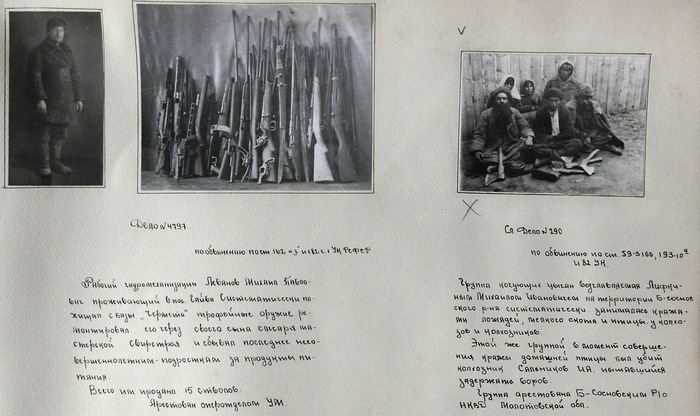 Дело №4797.
по обвинению по ст. 162 и 182 ч. 1 УК РСФСР
Рабочий гидромеханизации Леванов Михаил
проживающий в пос Гайва систематически по-
хищал с базы "Чермет" трофейные оружие ре-
монтировал его через своего сына слесаря ма-
стерской Свирстроя и сбывал последнее несо-
вершеннолетним-подросткам за продукты пи-
тания.
Всего им продано 15 стволов.
Арестован оперотделом УМ.
Сл. Дело №290
по обвинению по ст. 59-3, 193-10
и 82 УК.
Группа кочующих цыган возглавляемая
Михаилом Ивановичем на территории Б-соснов-
ского р-на систематически занималась кража-
ми лошадей, мелкого скота и птицы у колхо-
зов и колхозников.
Этой же группой в момент соверше-
ния кражи домашней птицы был убит
колхозник Сальников И.А. пытавшийся
задержать воров.
Группа арестована Б-Сосновским Р/О
НКВД Молотовской обл.